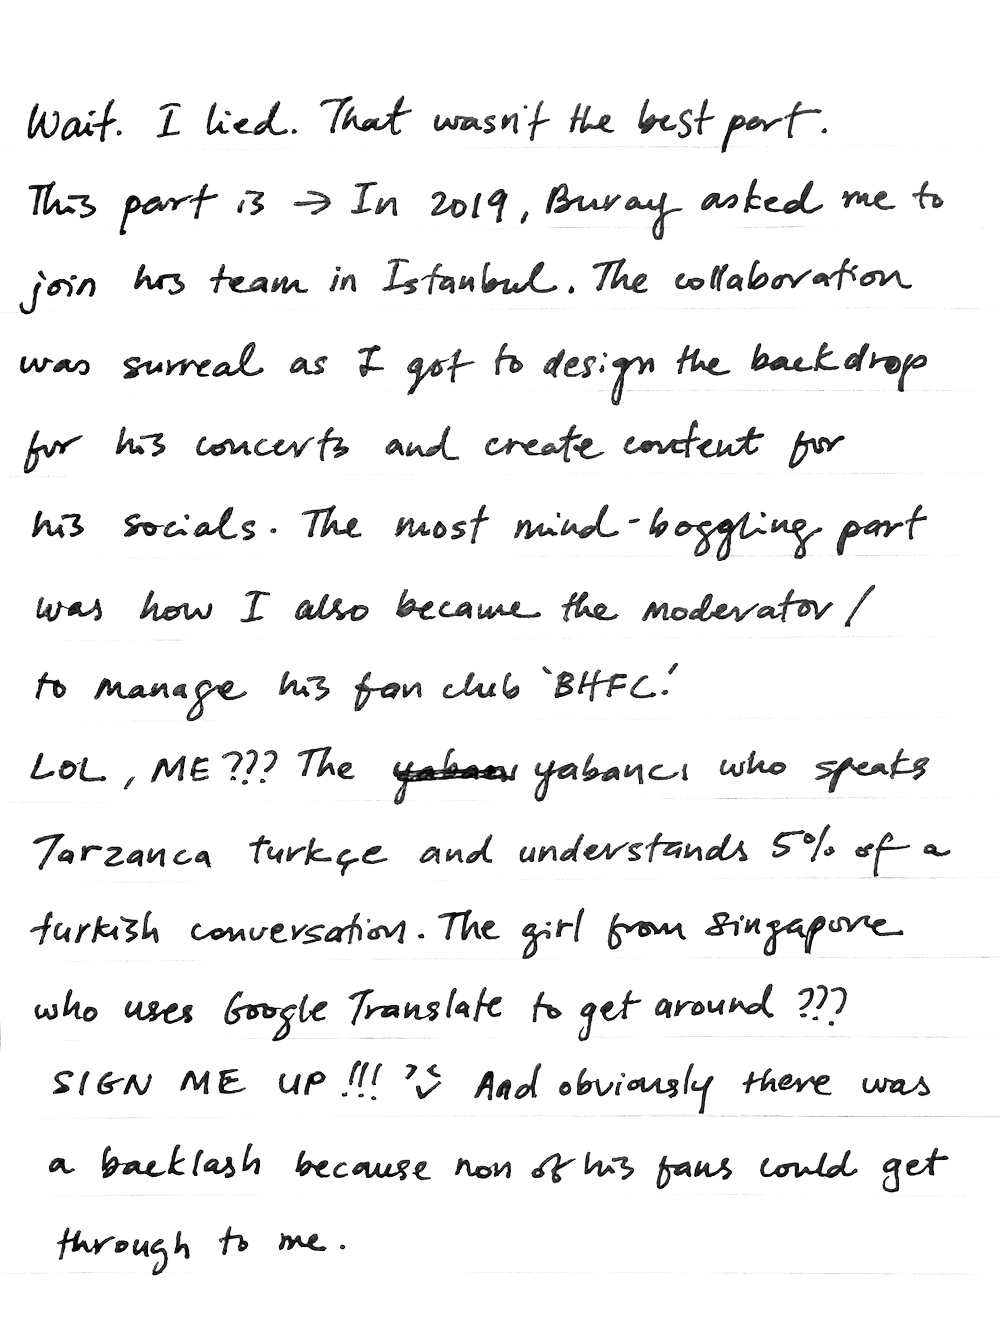 Wait. I lied. That wasn't the best part.
This part is → In 2019, Buray asked me to
join his team in Istanbul. The collaboration
was surreal as I got to design the backdrop
for his concerts and create content for
his socials. The most mind-boggling part
was how I also became the moderator/
to manage his fan club 'BHFC.'
LOL, ME??? The yabancı who speaks
Tarzanca turkçe and understands 5% of a
turkish conversation. The girl from Singapore
who uses Google Translate to get around ???
SIGN ME UP!!! And obviously there was
a backlash because non of his fans could get
through to me.